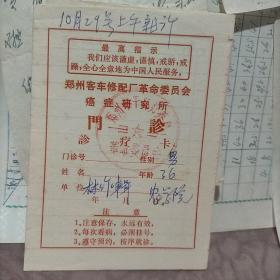 10月29号上午新诊
最高指示
我们应该谦虚，谨慎，戒骄，戒
躁，全心全意地为中国人民服务。
郑州客车修配厂革命委员会
癌症研究所
门 诊
诊疗卡
门诊号 性别 男
姓名 年龄 36
单位
年 月
注意
1、注意保存，永远有效。
2、每次看病，必须挂号。
3、遵守预约，按序就诊。